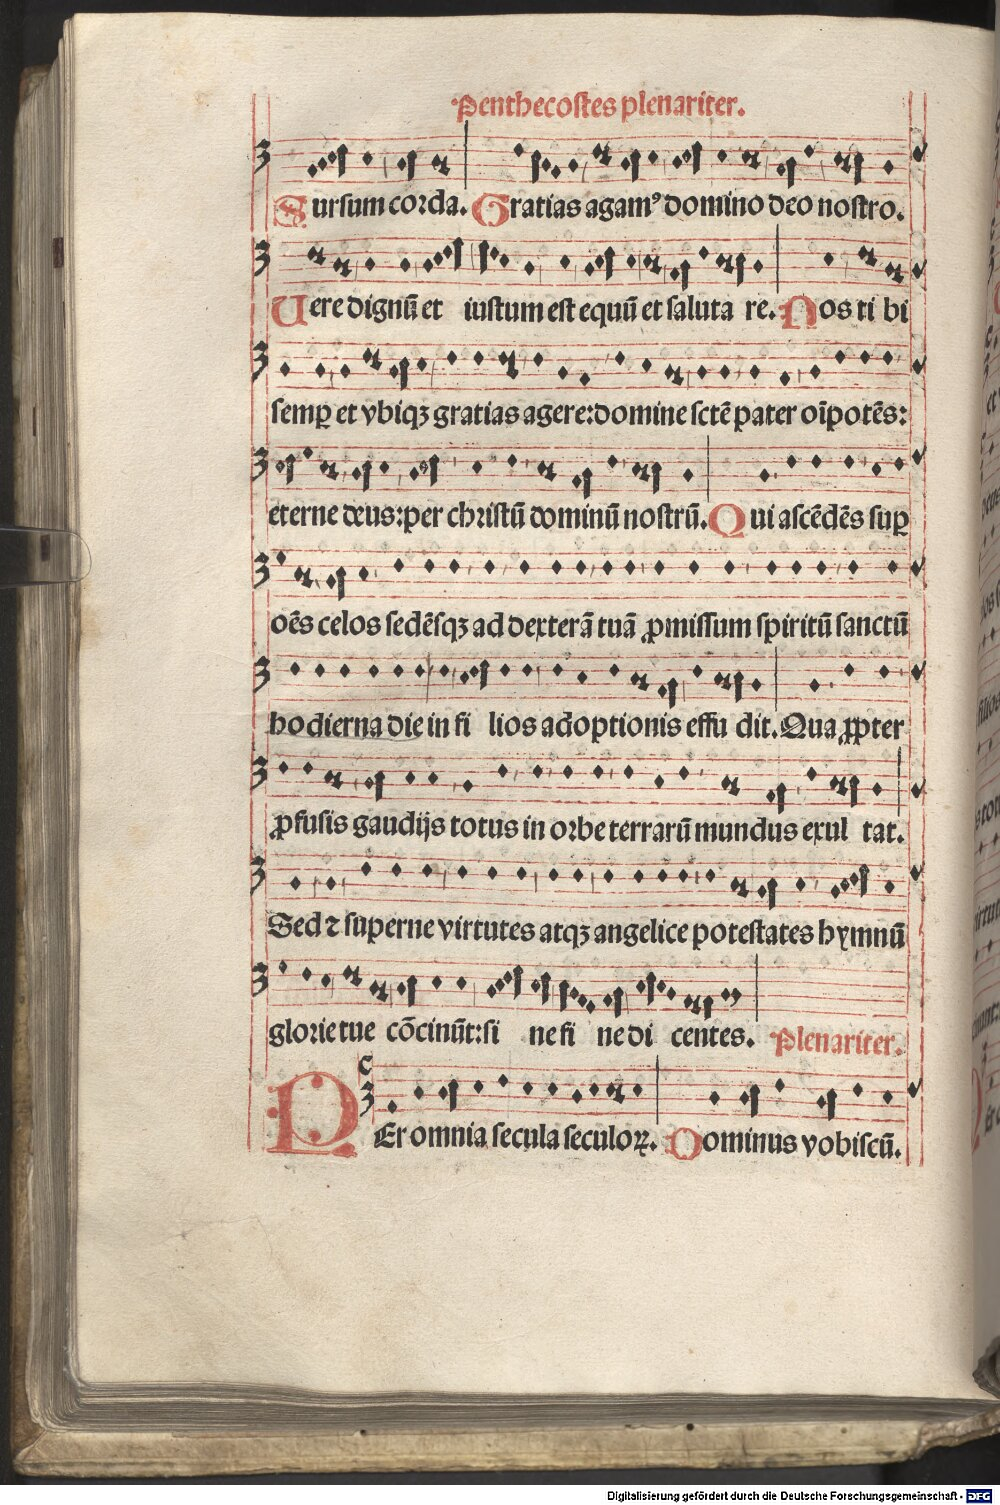 Penthecostes plenariter.
Sursum corda. Gratias agamꝰ domino deo nostro.
Uere dignū et iustum est equū et saluta re. Nos ti bi
semꝑ et vbiqꝫ gratias agere: domine sctē pater oīpotēs:
eterne deus: per christū dominū nostrū. Qui ascēdēs suꝑ
oēs celos sedēsqꝫ ad dexterā tuā ꝓmissum spiritū sanctū
hodierna die in fi lios adoptionis effu dit. Qua ꝓpter
ꝓfusis gaudijs totus in orbe terrarū mundus exul tat.
Sed ⁊ superne virtutes atqꝫ angelice potestates hymnū
glorie tue cōcinūt: si ne fi ne di centes. Plenariter.
PEr omnia secula seculoꝝ. Dominus vobiscū.
Digitalisierung gefördert durch die Deutsche Forschungsgemeinschaft - DFG